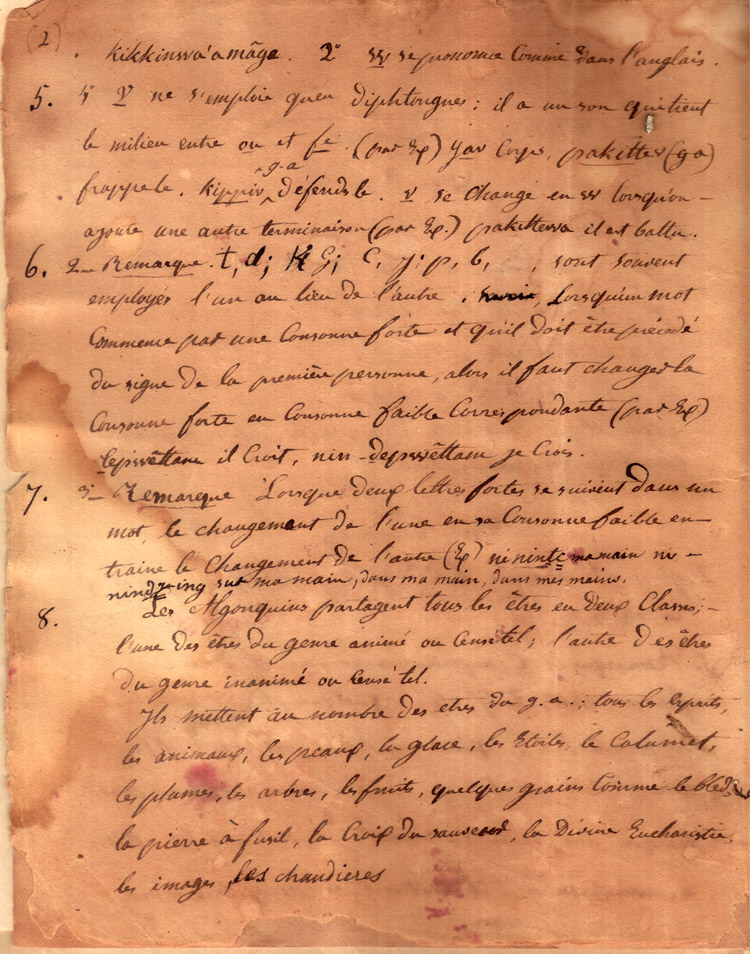 (2)
. Kikkinwa'amâge. 2° w se prononce Comme dans l'anglais.
5. 4° V ne s'emploie qu'en diphtongues: il a un son qui tient
le milieu entre ou et fe. (par Ex) yav Corps, pakittev (g a)
frappe le. Kippiv ^g.a défends le. v se change en w lorsqu'on
ajoute une autre terminaison (par Ex.) pakittewa il est battu.
6. 2me Remarque. t, d; K G; C, j; p, b, , sont souvent
employés l'un au lieu de l'autre. Lorsqu'un mot
Commence par une Consonne forte et qu'il doit être précédé
du signe de la première personne, alors il faut changer la
Consonne forte en Consonne faible Correspondante (par Ex)
tepwêttam il Croit, nin-depwêttam je Crois.
7. 3me Remarque Lorsque deux lettres fortes se suivent dans un
mot, le changement de l'une en sa Consonne faible en-
traine le Changement de l'autre (Ex) ni nintc ma main ni-
nindzing sur ma main, dans ma main, dans mes mains.
8. Les Algonquins partagent tous les êtres en deux Classes;
l'une des êtres du genre animé ou Censé tel; l'autre des êtres
du genre inanimé ou Censé tel.
Ils mettent au nombre des etres du g. a.; tous les Esprits,
les animaux, les peaux, la glace, les Etoiles, le Calumet,
les plumes, les arbres, les fruits, quelques grains Comme le bled,
la pierre à fusil, la Croix du sauveur, la Divine Eucharistie
les images, les chaudieres